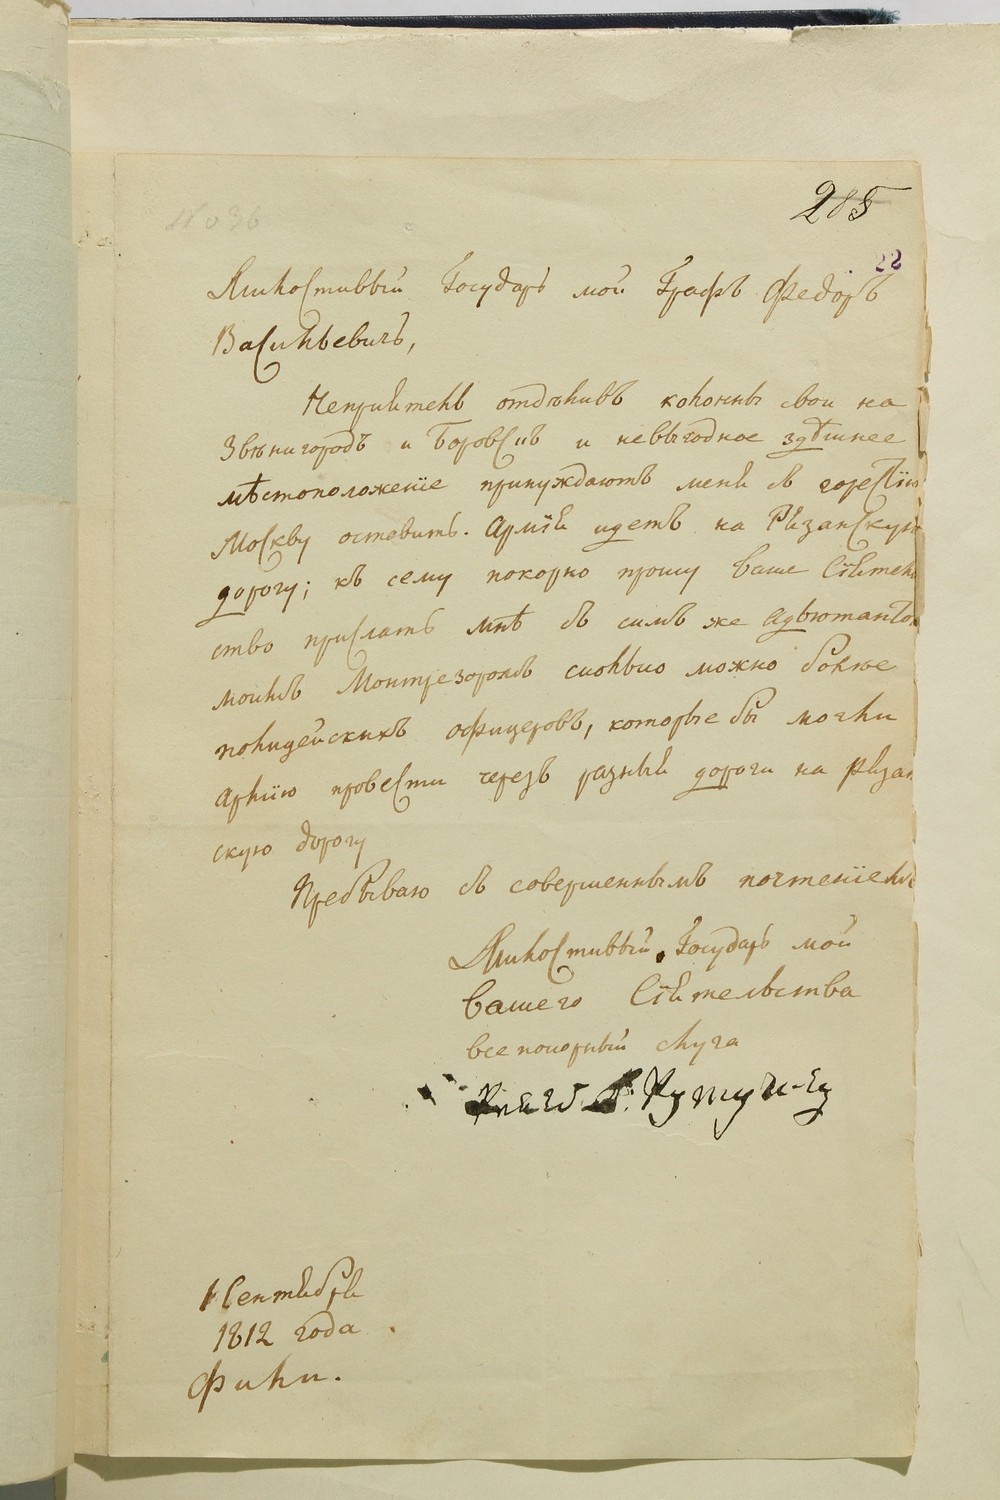 № 36
285
22
Милостивый Государь мой Графъ Федоръ
Васильевичъ,
Неприятель отделивъ колонны свои на
Звенигородъ и Боровскъ и невыгодное здѣшнее
мѣстоположеніе принуждаютъ меня съ горестію
Москву оставить. Армія идетъ на Рязанскую
дорогу; къ сему покорно прошу Ваше Сіятель
ство прислать мнѣ съ симъ же адъютантомъ
моимъ Монтрезоромъ сколько можно более
полицейскихъ офицеровъ, которые бы могли
армію провести черезъ разные дороги на Рязан
скую дорогу
Пребываю съ совершеннымъ почтеніемъ
Милостивый Государь мой
Вашего Сіятельства
всепокорный слуга
Князь Г. Кутузовъ
1 Сентября
1812 года
Фили.